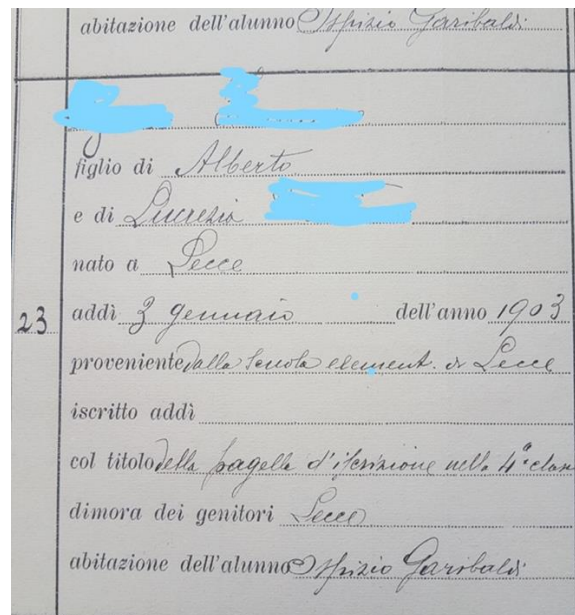 abitazione dell'alunno Ospizio Garibaldi
figlio di Alberto
e di Lucrezia
nato a Lecce
23 addì 3 gennaio dell'anno 1903
proveniente dalla Scuola element. di Lecce
iscritto addì
col titolo della pagella d'iscrizione nella 4ª clas
dimora dei genitori Lecce
abitazione dell'alunno Ospizio Garibaldi